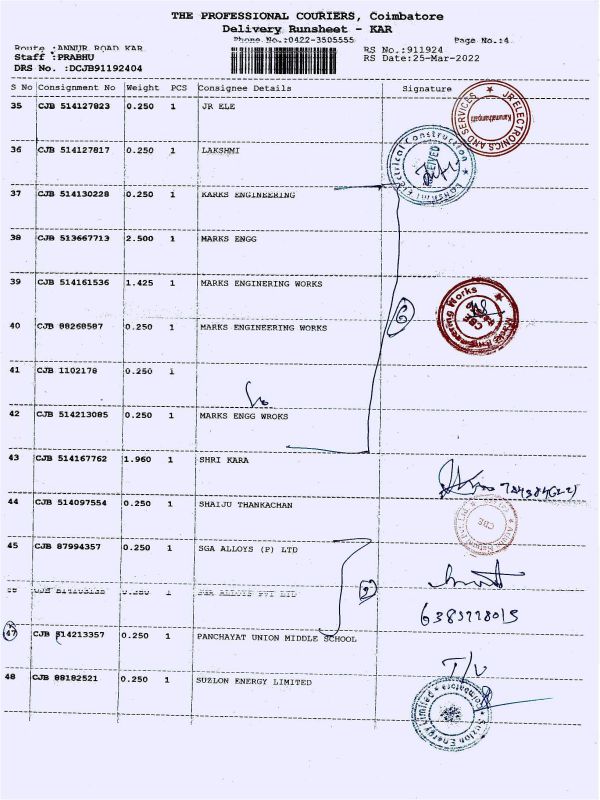 THE PROFESSIONAL COURIERS, Coimbatore
Delivery Runsheet - KAR
Phone No.:0422-3505555 Page No.:4
Route :ANNUR ROAD KAR RS No.:911924
Staff :PRABHU RS Date:25-Mar-2022
DRS No. :DCJB91192404
S No Consignment No Weight PCS Consignee Details Signature
35 CJB 514127823 0.250 1 JR ELE
JR ELECTRONICS AND SERVICES
36 CJB 514127817 0.250 1 LAKSHMI
Lakshmi Electrical Construction
37 CJB 514130228 0.250 1 KARKS ENGINEERING
38 CJB 513667713 2.500 1 MARKS ENGG
39 CJB 514161536 1.425 1 MARKS ENGINERING WORKS
Marks Engineering Works
40 CJB 88268587 0.250 1 MARKS ENGINEERING WORKS
41 CJB 1102178 0.250 1
42 CJB 514213085 0.250 1 MARKS ENGG WROKS
43 CJB 514167762 1.960 1 SHRI KARA
44 CJB 514097554 0.250 1 SHAIJU THANKACHAN
CBE
45 CJB 87994357 0.250 1 SGA ALLOYS (P) LTD
ALLOYS PVT LTD
47 CJB 514213357 0.250 1 PANCHAYAT UNION MIDDLE SCHOOL
48 CJB 88182521 0.250 1 SUZLON ENERGY LIMITED
Suzlon Energy Limited * Coimbatore